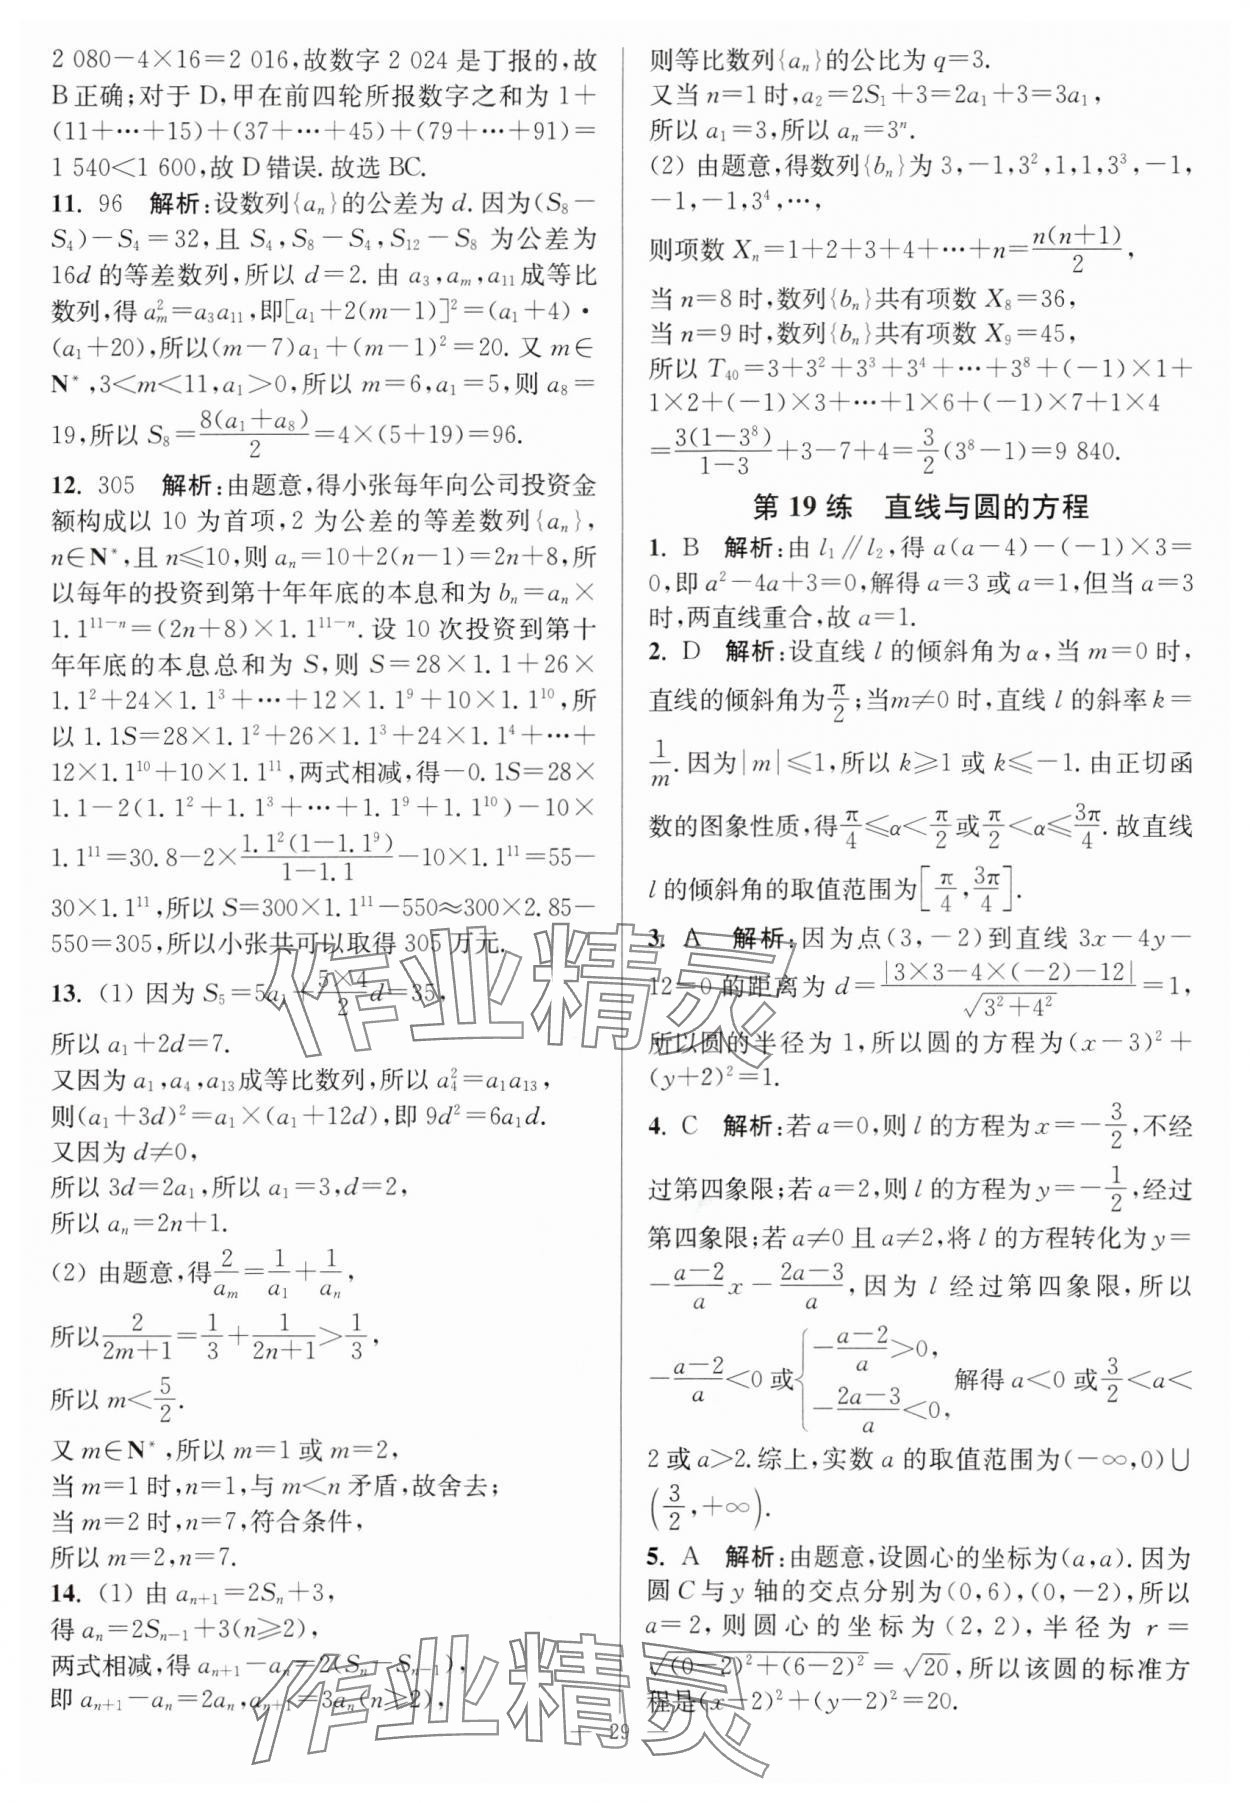 2 080－4×16＝2 016,故数字 2 024 是丁报的,故
B 正确;对于 D,甲在前四轮所报数字之和为 1＋
(11＋…＋15)＋(37＋…＋45)＋(79＋…＋91)＝
1 540＜1 600,故 D 错误.故选 BC.
11. 96　解析:设数列{aₙ}的公差为 d.因为(S₈－
S₄)－S₄＝32,且 S₄,S₈－S₄,S₁₂－S₈ 为公差为
16d 的等差数列,所以 d＝2. 由 a₃,aₘ,a₁₁成等比
数列,得 aₘ²＝a₃a₁₁,即[a₁＋2(m－1)]²＝(a₁＋4)·
(a₁＋20),所以(m－7)a₁＋(m－1)²＝20. 又 m∈
N*,3＜m＜11,a₁＞0,所以 m＝6,a₁＝5,则 a₈＝
19,所以 S₈＝8(a₁＋a₈)/2＝4×(5＋19)＝96.
12. 305　解析:由题意,得小张每年向公司投资金
额构成以 10 为首项,2 为公差的等差数列{aₙ},
n∈N*,且 n≤10,则 aₙ＝10＋2(n－1)＝2n＋8,所
以每年的投资到第十年年底的本息和为 bₙ＝aₙ×
1.1¹¹⁻ⁿ＝(2n＋8)×1.1¹¹⁻ⁿ. 设 10 次投资到第十
年年底的本息总和为 S,则 S＝28×1.1＋26×
1.1²＋24×1.1³＋…＋12×1.1⁹＋10×1.1¹⁰,所
以 1.1S＝28×1.1²＋26×1.1³＋24×1.1⁴＋…＋
12×1.1¹⁰＋10×1.1¹¹,两式相减,得－0.1S＝28×
1.1－2(1.1²＋1.1³＋…＋1.1⁹＋1.1¹⁰)－10×
1.1¹¹＝30.8－2×1.1²(1－1.1⁹)/(1－1.1)－10×1.1¹¹＝55－
30×1.1¹¹,所以 S＝300×1.1¹¹－550≈300×2.85－
550＝305,所以小张共可以取得 305 万元.
13. (1) 因为 S₅＝5a₁＋(5×4)/2 d＝35,
所以 a₁＋2d＝7.
又因为 a₁,a₄,a₁₃成等比数列,所以 a₄²＝a₁a₁₃,
则(a₁＋3d)²＝a₁×(a₁＋12d),即 9d²＝6a₁d.
又因为 d≠0,
所以 3d＝2a₁,所以 a₁＝3,d＝2,
所以 aₙ＝2n＋1.
(2) 由题意,得2/aₘ＝1/a₁＋1/aₙ,
所以2/(2m＋1)＝1/3＋1/(2n＋1)＞1/3,
所以 m＜5/2.
又 m∈N*,所以 m＝1 或 m＝2,
当 m＝1 时,n＝1,与 m＜n 矛盾,故舍去;
当 m＝2 时,n＝7,符合条件,
所以 m＝2,n＝7.
14. (1) 由 aₙ₊₁＝2Sₙ＋3,
得 aₙ＝2Sₙ₋₁＋3(n≥2),
两式相减,得 aₙ₊₁－aₙ＝2(Sₙ－Sₙ₋₁),
即 aₙ₊₁－aₙ＝2aₙ,aₙ₊₁＝3aₙ(n≥2),
则等比数列{aₙ}的公比为 q＝3.
又当 n＝1 时,a₂＝2S₁＋3＝2a₁＋3＝3a₁,
所以 a₁＝3,所以 aₙ＝3ⁿ.
(2) 由题意,得数列{bₙ}为 3,－1,3²,1,1,3³,－1,
－1,－1,3⁴,…,
则项数 Xₙ＝1＋2＋3＋4＋…＋n＝n(n＋1)/2,
当 n＝8 时,数列{bₙ}共有项数 X₈＝36,
当 n＝9 时,数列{bₙ}共有项数 X₉＝45,
所以 T₄₀＝3＋3²＋3³＋3⁴＋…＋3⁸＋(－1)×1＋
1×2＋(－1)×3＋…＋1×6＋(－1)×7＋1×4
＝3(1－3⁸)/(1－3)＋3－7＋4＝3/2(3⁸－1)＝9 840.
第 19 练　直线与圆的方程
1. B　解析:由 l₁∥l₂,得 a(a－4)－(－1)×3＝
0,即 a²－4a＋3＝0,解得 a＝3 或 a＝1,但当 a＝3
时,两直线重合,故 a＝1.
2. D　解析:设直线 l 的倾斜角为 α,当 m＝0 时,
直线的倾斜角为π/2;当m≠0 时,直线 l 的斜率 k＝
1/m.因为|m|≤1,所以 k≥1 或 k≤－1. 由正切函
数的图象性质,得π/4≤α＜π/2或π/2＜α≤3π/4.故直线
l 的倾斜角的取值范围为[π/4,3π/4].
3. A　解析:因为点(3,－2)到直线 3x－4y－
12＝0 的距离为 d＝|3×3－4×(－2)－12|/√(3²＋4²)＝1,
所以圆的半径为 1,所以圆的方程为(x－3)²＋
(y＋2)²＝1.
4. C　解析:若 a＝0,则 l 的方程为 x＝－3/2,不经
过第四象限;若 a＝2,则 l 的方程为 y＝－1/2,经过
第四象限;若 a≠0 且 a≠2,将 l 的方程转化为 y＝
－(a－2)/a x－(2a－3)/a,因为 l 经过第四象限,所以
－(a－2)/a＜0 或{－(a－2)/a＞0,－(2a－3)/a＜0,解得 a＜0 或3/2＜a＜
2 或 a＞2.综上,实数 a 的取值范围为(－∞,0)∪
(3/2,＋∞).
5. A　解析:由题意,设圆心的坐标为(a,a).因为
圆 C 与 y 轴的交点分别为(0,6),(0,－2),所以
a＝2,则圆心的坐标为(2,2),半径为 r＝
√((0－2)²＋(6－2)²)＝√20,所以该圆的标准方
程是(x－2)²＋(y－2)²＝20.
— 29 —
作业精灵
作业精灵